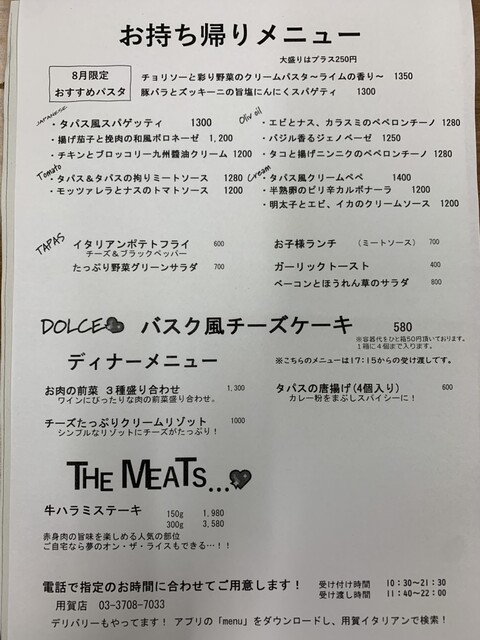 お持ち帰りメニュー
大盛りはプラス250円
8月限定
おすすめパスタ
チョリソーと彩り野菜のクリームパスタ〜ライムの香り〜 1350
豚バラとズッキーニの旨塩にんにくスパゲティ 1300
JAPANESE
・タパス風スパゲッティ 1300
・揚げ茄子と挽肉の和風ボロネーゼ 1,200
・チキンとブロッコリー九州醬油クリーム 1200
Tomato
・タパス&タパスの拘りミートソース 1280
・モッツァレラとナスのトマトソース 1200
Olive oil
・エビとナス、カラスミのペペロンチーノ 1280
・バジル香るジェノベーゼ 1250
・タコと揚げニンニクのペペロンチーノ 1280
Cream
・タパス風クリームペペ 1400
・半熟卵のピリ辛カルボナーラ 1200
・明太子とエビ、イカのクリームソース 1200
TAPAS
イタリアンポテトフライ 600
チーズ&ブラックペッパー
たっぷり野菜グリーンサラダ 700
お子様ランチ (ミートソース) 700
ガーリックトースト 400
ベーコンとほうれん草のサラダ 800
DOLCE バスク風チーズケーキ 580
※容器代をひと箱50円頂いております。
1箱に4個まで入ります。
ディナーメニュー
※こちらのメニューは17:15からの受け渡しです。
お肉の前菜 3種盛り合わせ 1,300
ワインにぴったりな肉の前菜盛り合わせ。
チーズたっぷりクリームリゾット 1000
シンプルなリゾットにチーズがたっぷり!
タパスの唐揚げ(4個入り) 600
カレー粉をまぶしスパイシーに!
THE MEATS...
牛ハラミステーキ 150g 1,980
300g 3,580
赤身肉の旨味を楽しめる人気の部位
ご自宅なら夢のオン・ザ・ライスもできる…!!
電話で指定のお時間に合わせてご用意します!
受け付け時間 10:30〜21:30
受け渡し時間 11:40〜22:00
用賀店 03-3708-7033
デリバリーもやってます! アプリの「menu」をダウンロードし、用賀イタリアンで検索!